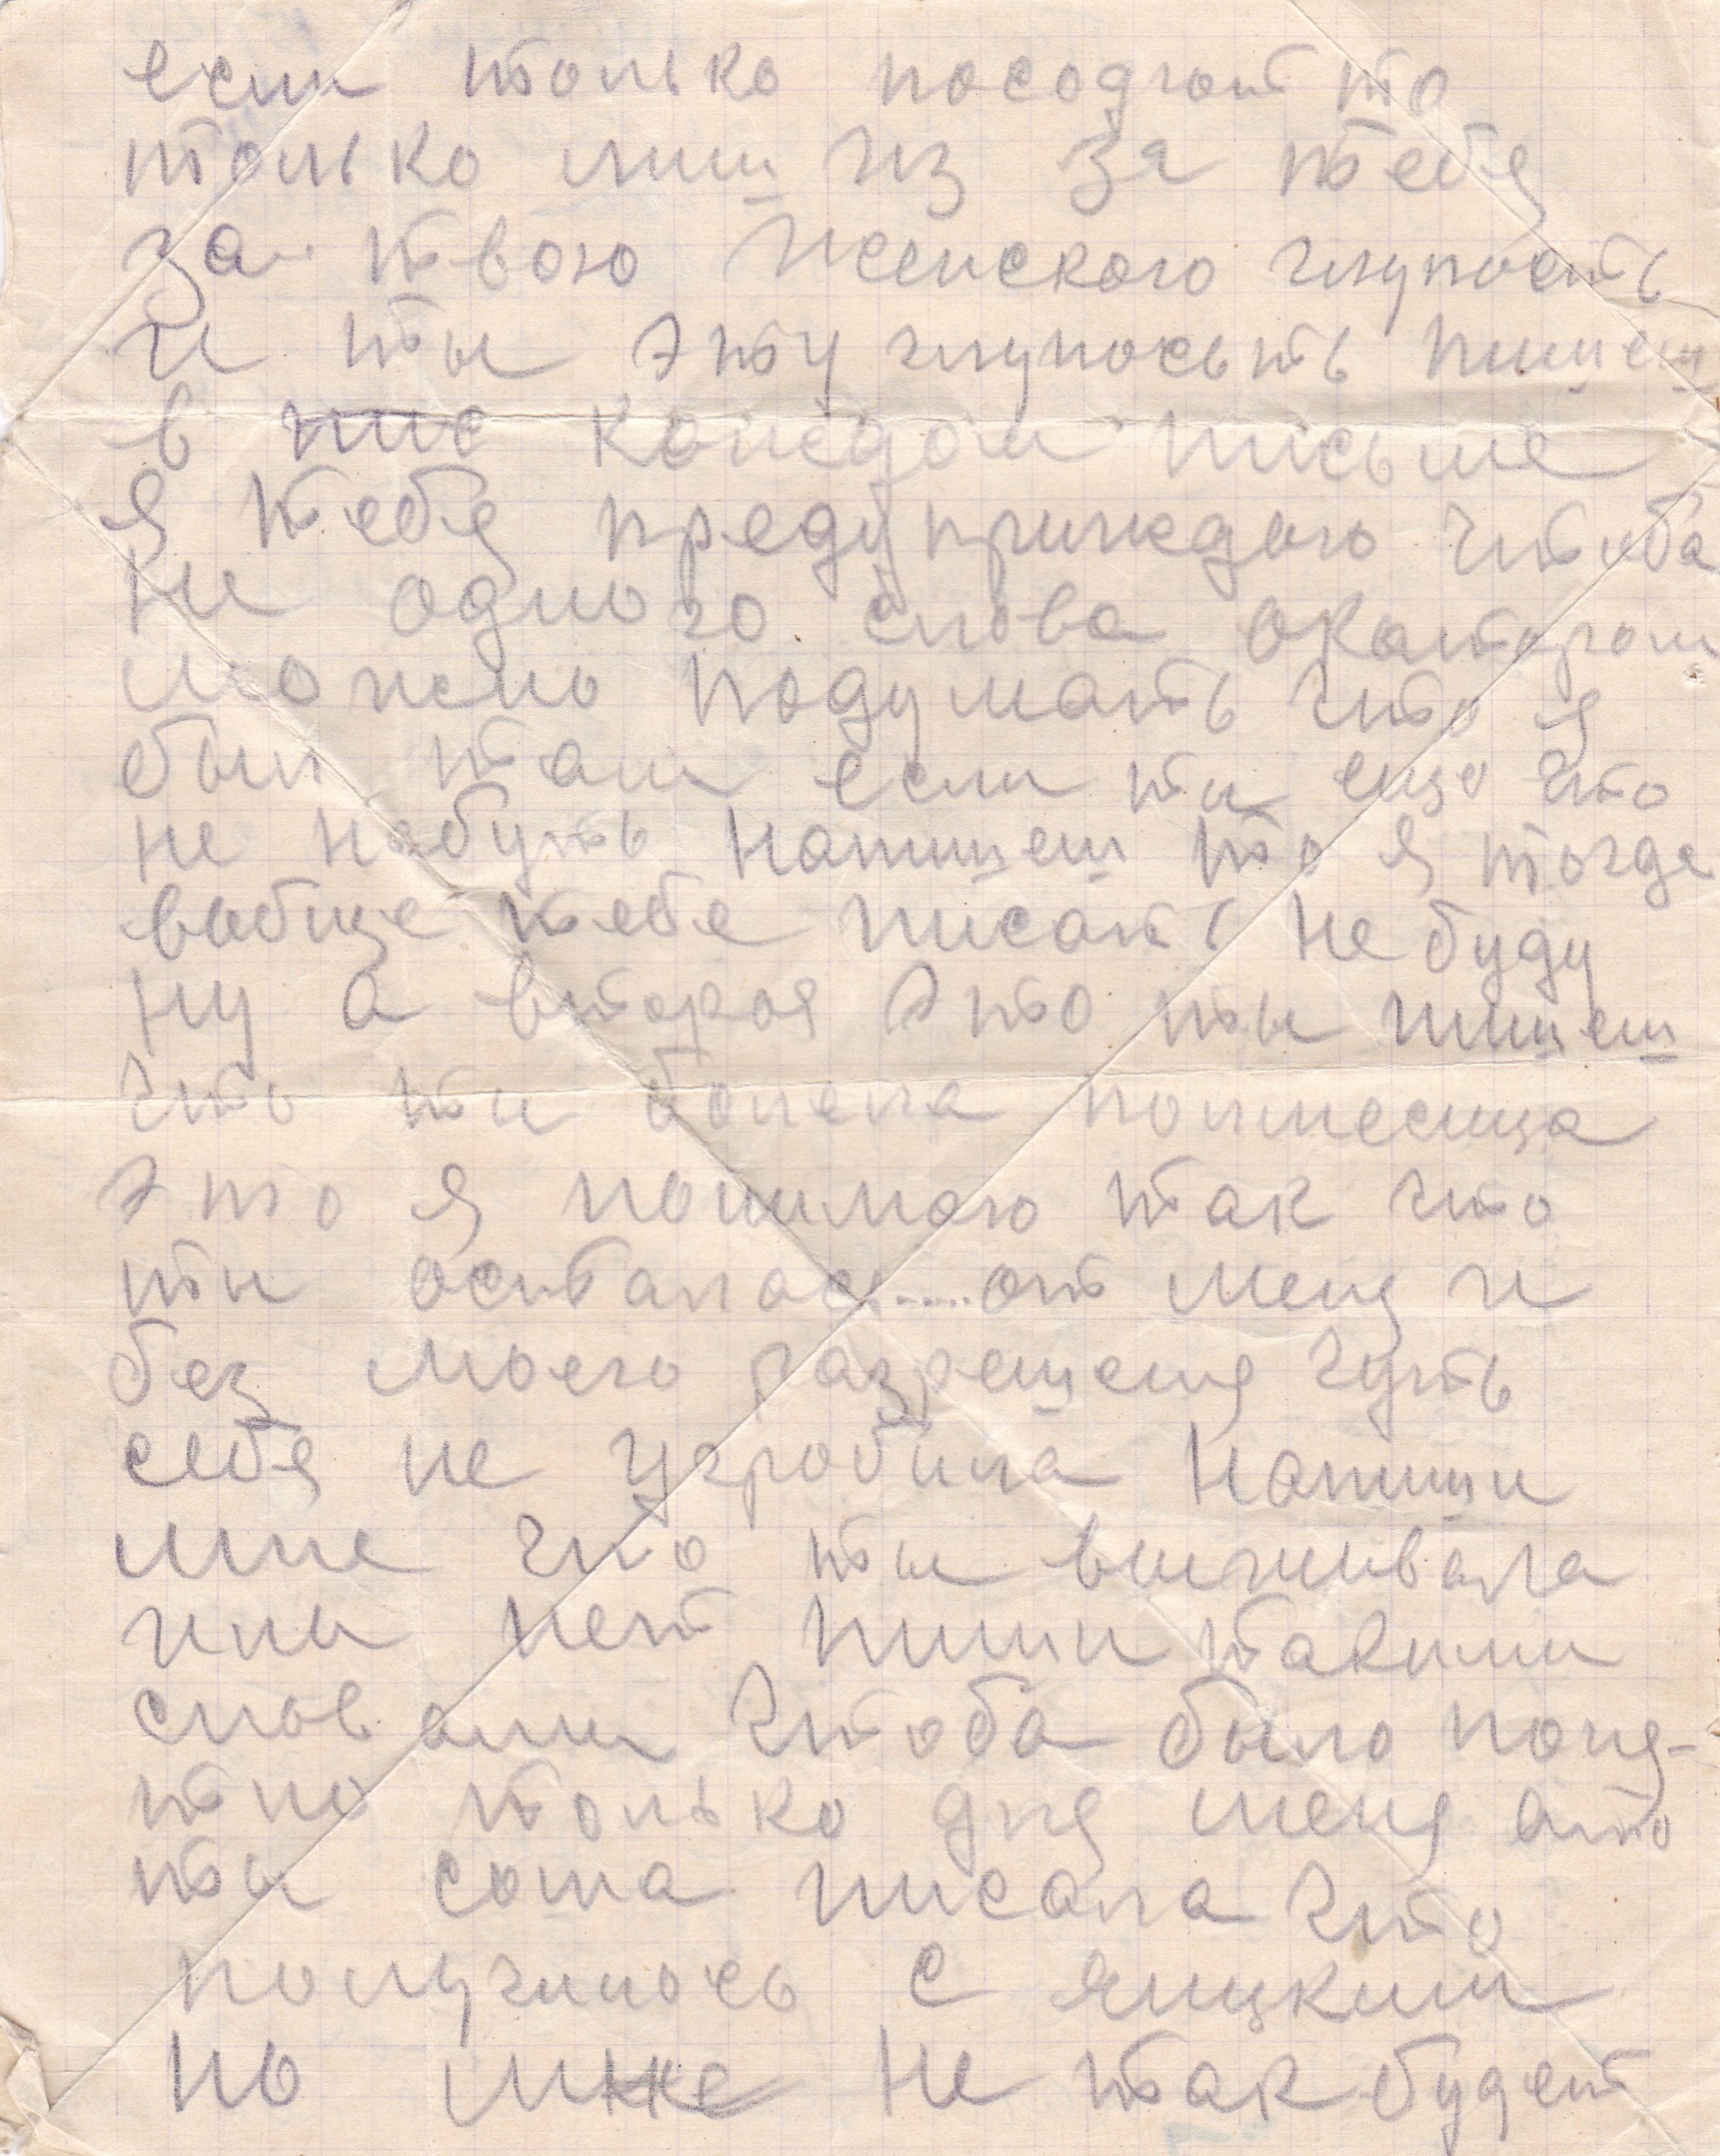 если только посодют то
только лиш из за тебя
за твою женского глупость
и ты эту глупосьть пишеш
в пис каждом письме
я тебя предуприждаю чтоба
не одного слова окотором
можно подумать что я
был там если ты еще что
не небуть напишеш то я тогда
вабще тебе писать не буду
ну а вторая это ты пишеш
что ты болела полмесица
это я понимаю так что
ты осталась......от меня и
без моего разрешеня чуть
себя не угробила напиши
мне что ты выживала
или нет пиши такими
словами чтоба было поня-
тно только для меня ато
ты сома писала что
получилось с ялицким
но мне не так будет